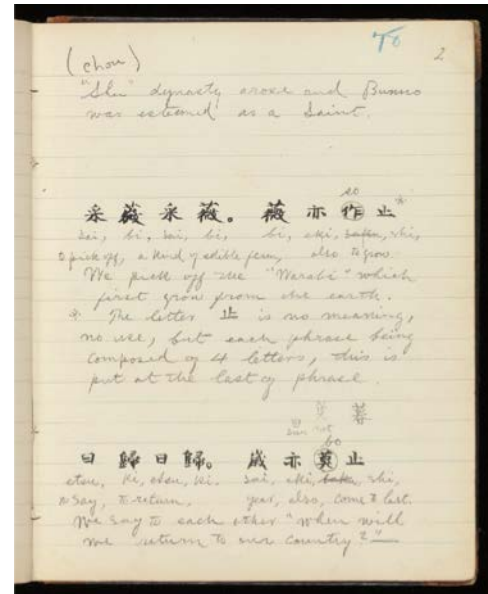 To 2
(chou)
"Shu" dynasty arose and Bunno
was esteemed as a Saint.
so
采薇采薇。薇亦作止
sai, bi, sai, bi, bi, eki, saku, shi,
to pick off, a kind of edible fern, also to grow.
We pick off the "Warabi" which
first grow from the earth.
The letter 止 is no meaning,
no use, but each phrase being
composed of 4 letters, this is
put at the last of phrase.
莫 暮
日
sun not
bo
曰歸曰歸。歲亦莫止
etsu, ki, etsu, ki. sai, eki, baku, shi,
to say, to return, year, also, come to last.
We say to each other "when will
we return to our country?"